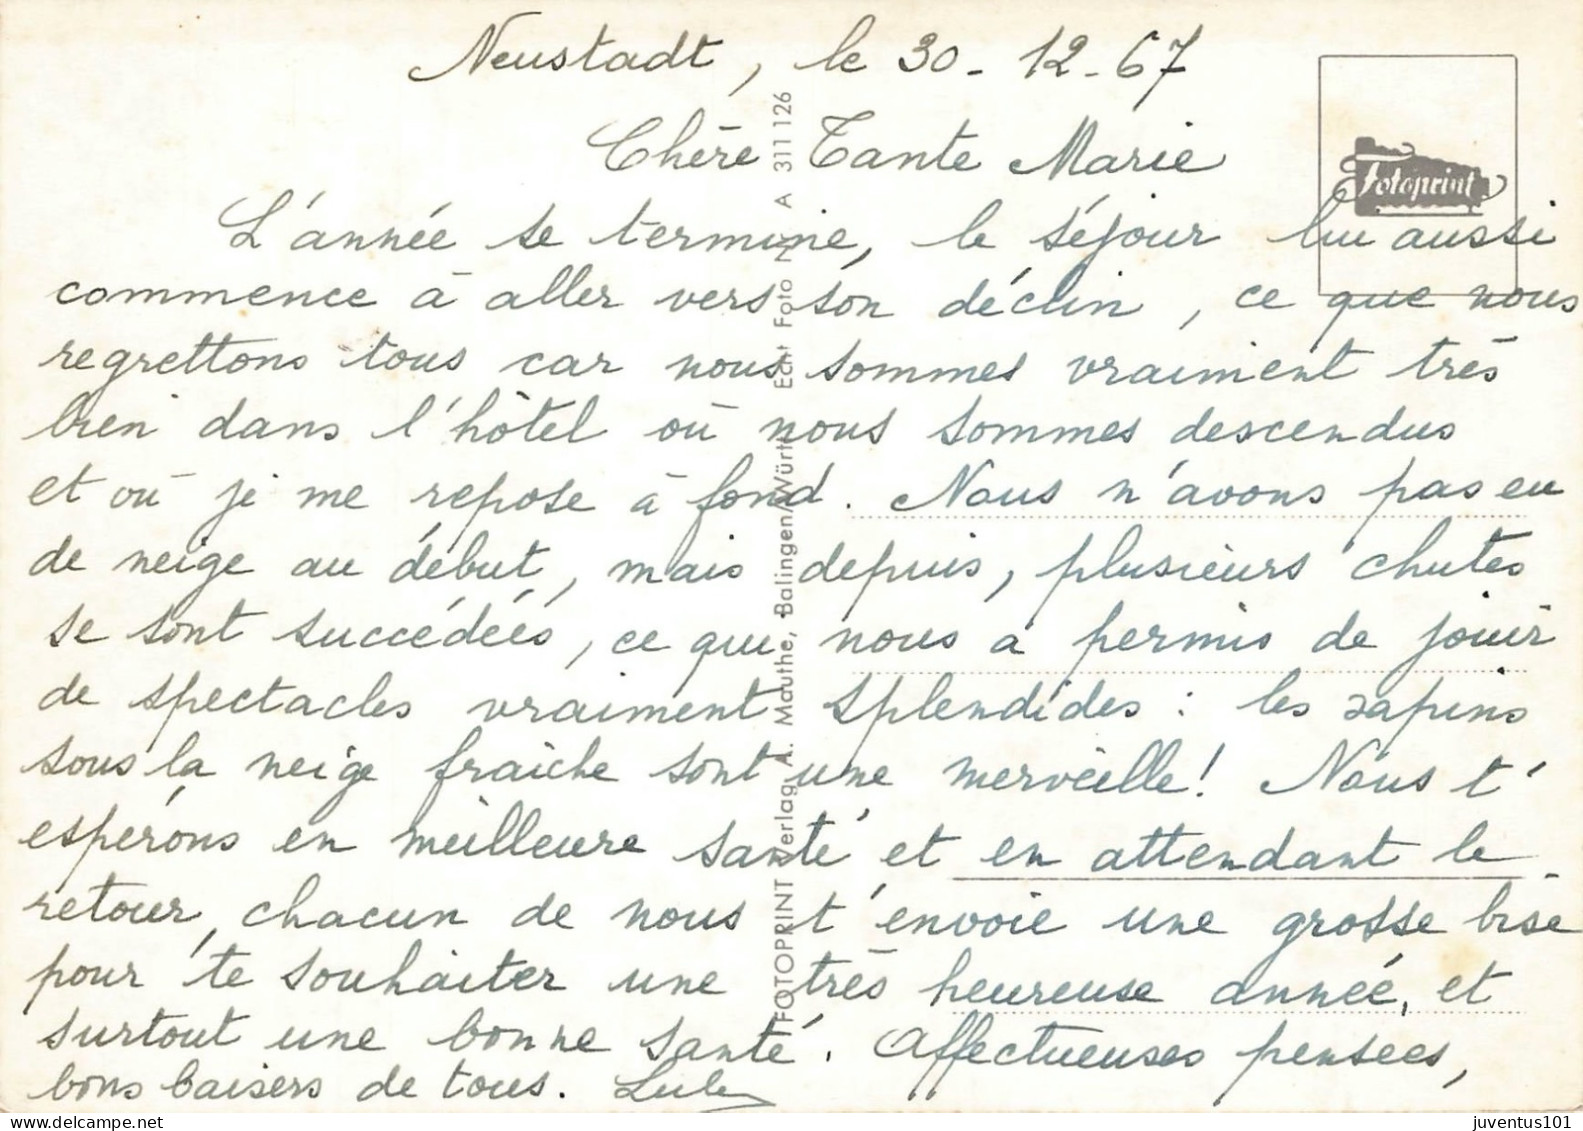 Neustadt, le 30-12-67
Chère Tante Marie
L'année se termine, le séjour lui aussi
commence à aller vers son déclin, ce que nous
regrettons tous car nous sommes vraiment très
bien dans l'hôtel où nous sommes descendus
et où je me repose à fond. Nous n'avons pas eu
de neige au début, mais depuis, plusieurs chutes
se sont succédées, ce qui nous a permis de jouir
de spectacles vraiment splendides : les sapins
sous la neige fraîche sont une merveille! Nous t'
espérons en meilleure santé et en attendant le
retour, chacun de nous t'envoie une grosse bise
pour te souhaiter une très heureuse année, et
surtout une bonne santé. Affectueuses pensées,
bons baisers de tous.
FOTOPRINT Verlag A. Mauthe, Balingen/Württ. Echt Foto A 311 126
Fotoprint
delcampe.net
juventus101